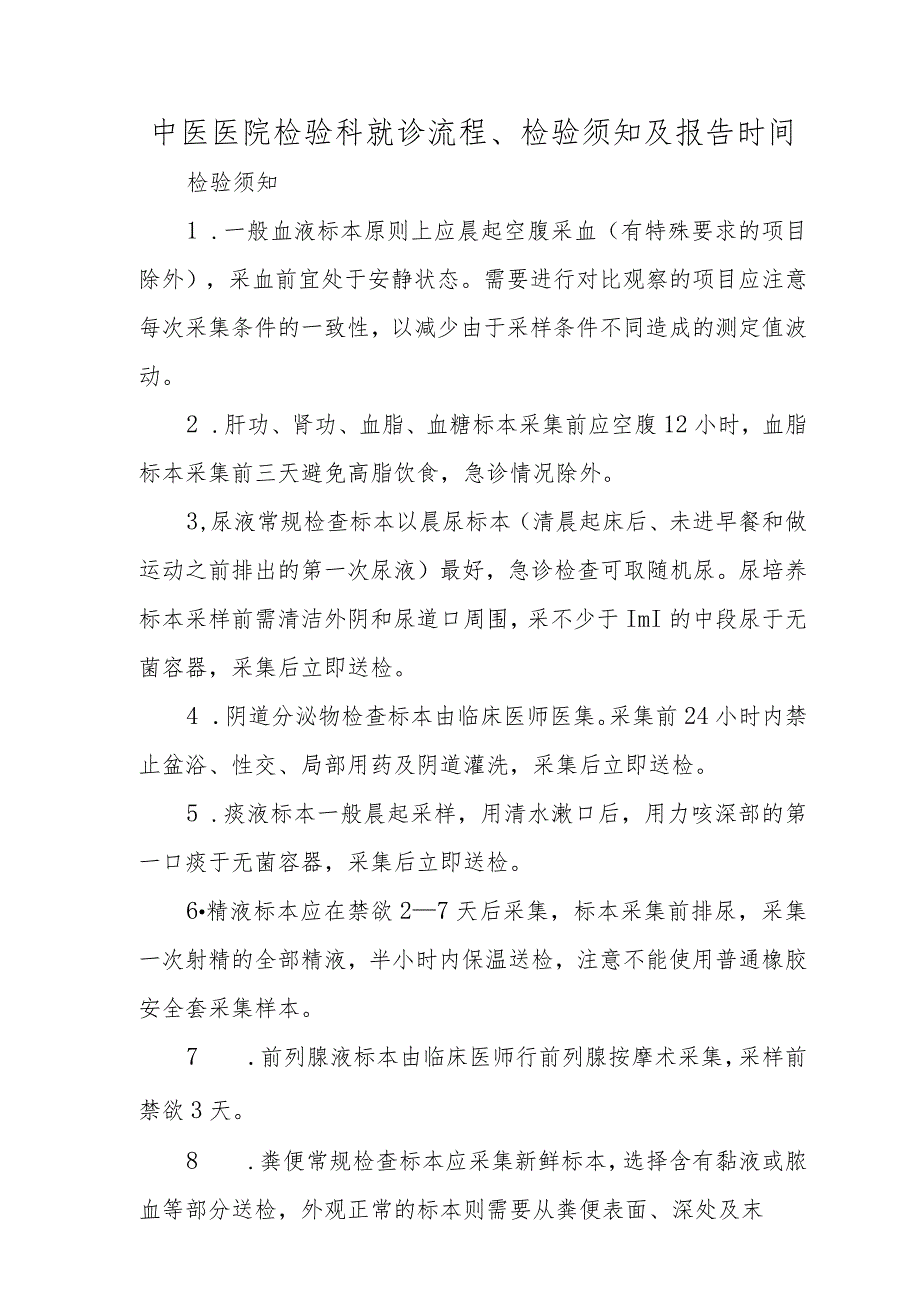 中医医院检验科就诊流程、检验须知及报告时间
检验须知
1 .一般血液标本原则上应晨起空腹采血（有特殊要求的项目
除外），采血前宜处于安静状态。需要进行对比观察的项目应注意
每次采集条件的一致性，以减少由于采样条件不同造成的测定值波
动。
2 .肝功、肾功、血脂、血糖标本采集前应空腹12小时，血脂
标本采集前三天避免高脂饮食，急诊情况除外。
3,尿液常规检查标本以晨尿标本（清晨起床后、未进早餐和做
运动之前排出的第一次尿液）最好，急诊检查可取随机尿。尿培养
标本采样前需清洁外阴和尿道口周围，采不少于ImI的中段尿于无
菌容器，采集后立即送检。
4 .阴道分泌物检查标本由临床医师医集。采集前24小时内禁
止盆浴、性交、局部用药及阴道灌洗，采集后立即送检。
5 .痰液标本一般晨起采样，用清水漱口后，用力咳深部的第
一口痰于无菌容器，采集后立即送检。
6•精液标本应在禁欲2—7天后采集，标本采集前排尿，采集
一次射精的全部精液，半小时内保温送检，注意不能使用普通橡胶
安全套采集样本。
7 .前列腺液标本由临床医师行前列腺按摩术采集，采样前
禁欲3天。
8 .粪便常规检查标本应采集新鲜标本，选择含有黏液或脓
血等部分送检，外观正常的标本则需要从粪便表面、深处及末